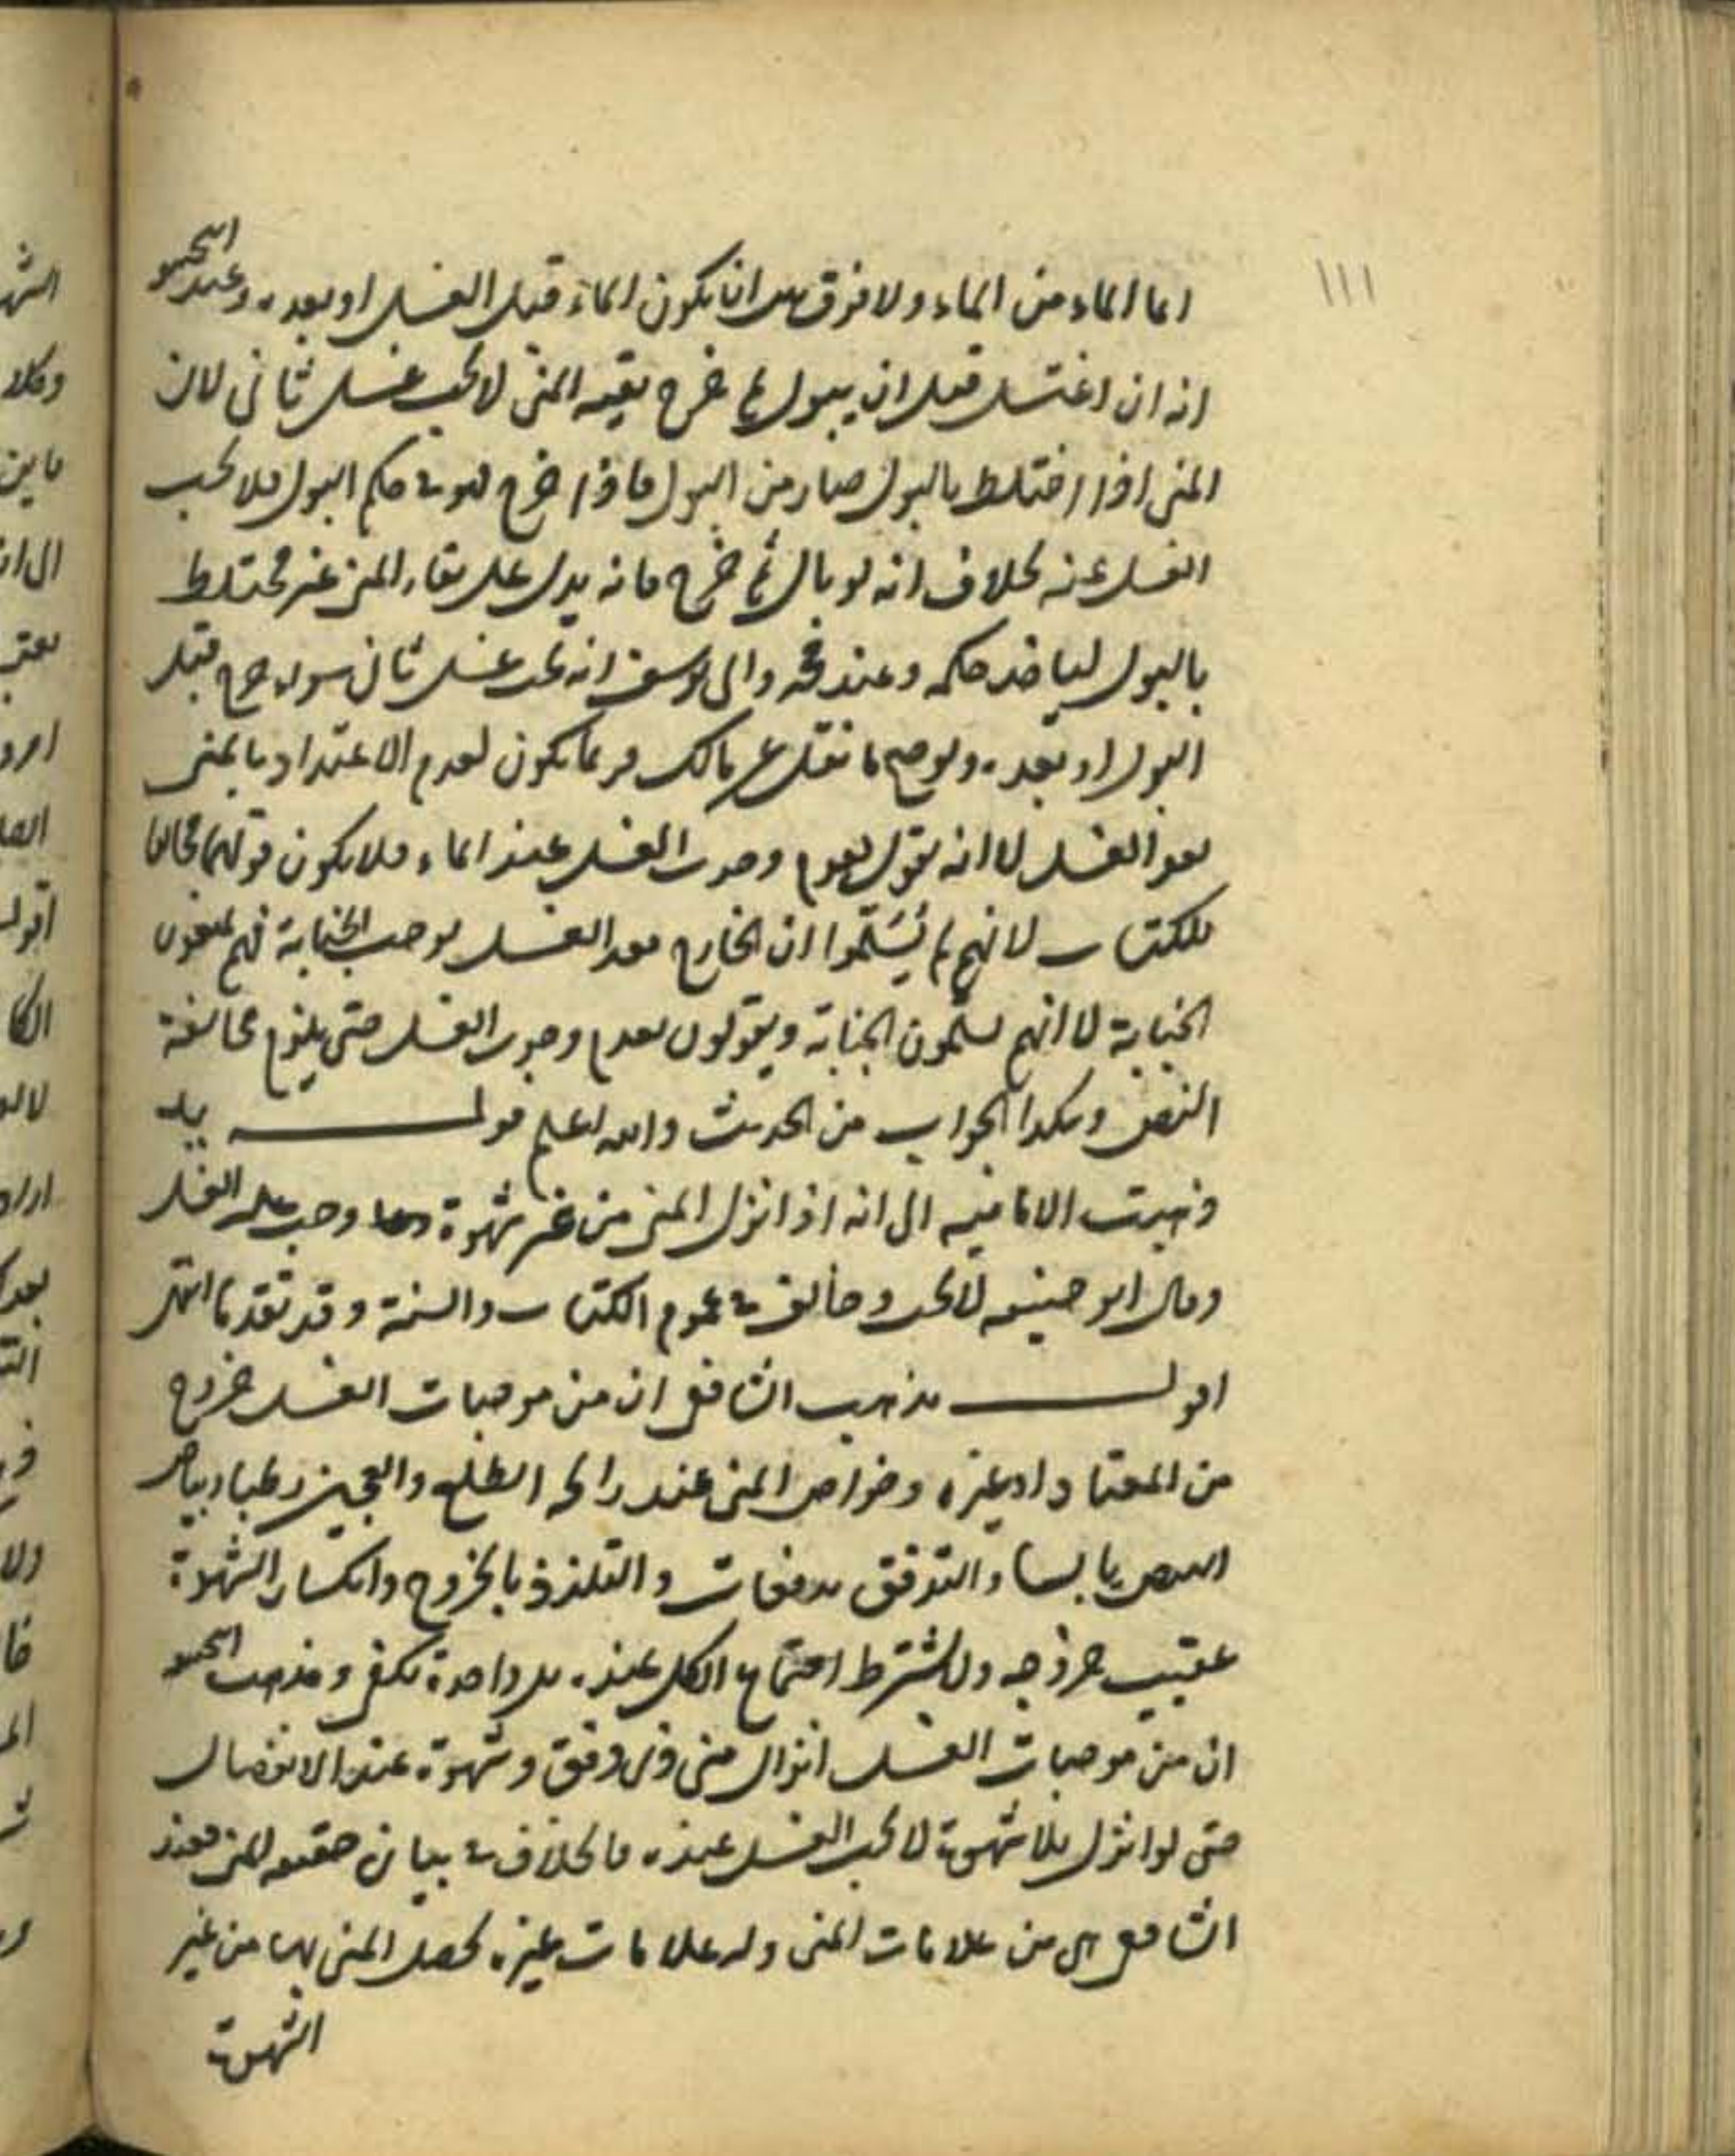 ١١١
انما الماء من الماء ولا فرق بين ان يكون الماء قبل الغسل او بعده وعند ابي حنيفه
انه ان اغتسل قبل ان يبول ثم خرج بقيه المني لا يجب غسل ثاني لان
المني اذا اختلط بالبول صار من البول فاذا خرج فهو في حكم البول فلا يجب
الغسل عنه بخلاف انه لو بال ثم خرج فانه يدل على بقاء المني غير مختلط
بالبول لياخذ حكمه وعند محمد وابي يوسف انه يجب غسل ثان سواء خرج قبل
البول او بعده ولو صح ما نقل عن مالك فربما يكون لعدم الاعتداد بالمني
بعد الغسل لا انه يقول بعدم وجوب الغسل عند الماء فلا يكون قولهما مخالفا
للكتاب لانهم لم يُسَلِّموا ان الخارج بعد الغسل يوجب الجنابة فهم يمنعون
الجنابة لا انهم يسلمون الجنابة ويقولون بعدم وجوب الغسل حتى يلزم مخالفة
النص وهكذا الجواب من الحديث والله اعلم قوله يلـه
ذهبت الاماميه الى انه اذا نزل المني من غير شهوة وجب عليه الغسل
وقال ابو حنيفه لا يجب وخالف في عموم الكتاب والسنة وقد تقدما انتهى
اقول مذهب الشافعي ان من موجبات الغسل خروج
من المعتاد او غيره وخواص المني عنده رائحه الطلع والعجين رطبا وبياض
البيض يابسا والتدفق بدفعات والتلذذ بالخروج وانكسار الشهوة
عقيب خروجه ولا يشترط اجتماع الكل عنده بل واحدة يكفي ومذهب ابي حنيفه
ان من موجبات الغسل انزال مني ذي دفق وشهوة عند الانفصال
حتى لو انزل بلا شهوة لا يجب الغسل عنده فالخلاف في بيان حقيقه المني فعند
الشافعي هي من علامات المني وله علامات غيره يحصل المني بها من غير
الشهوة